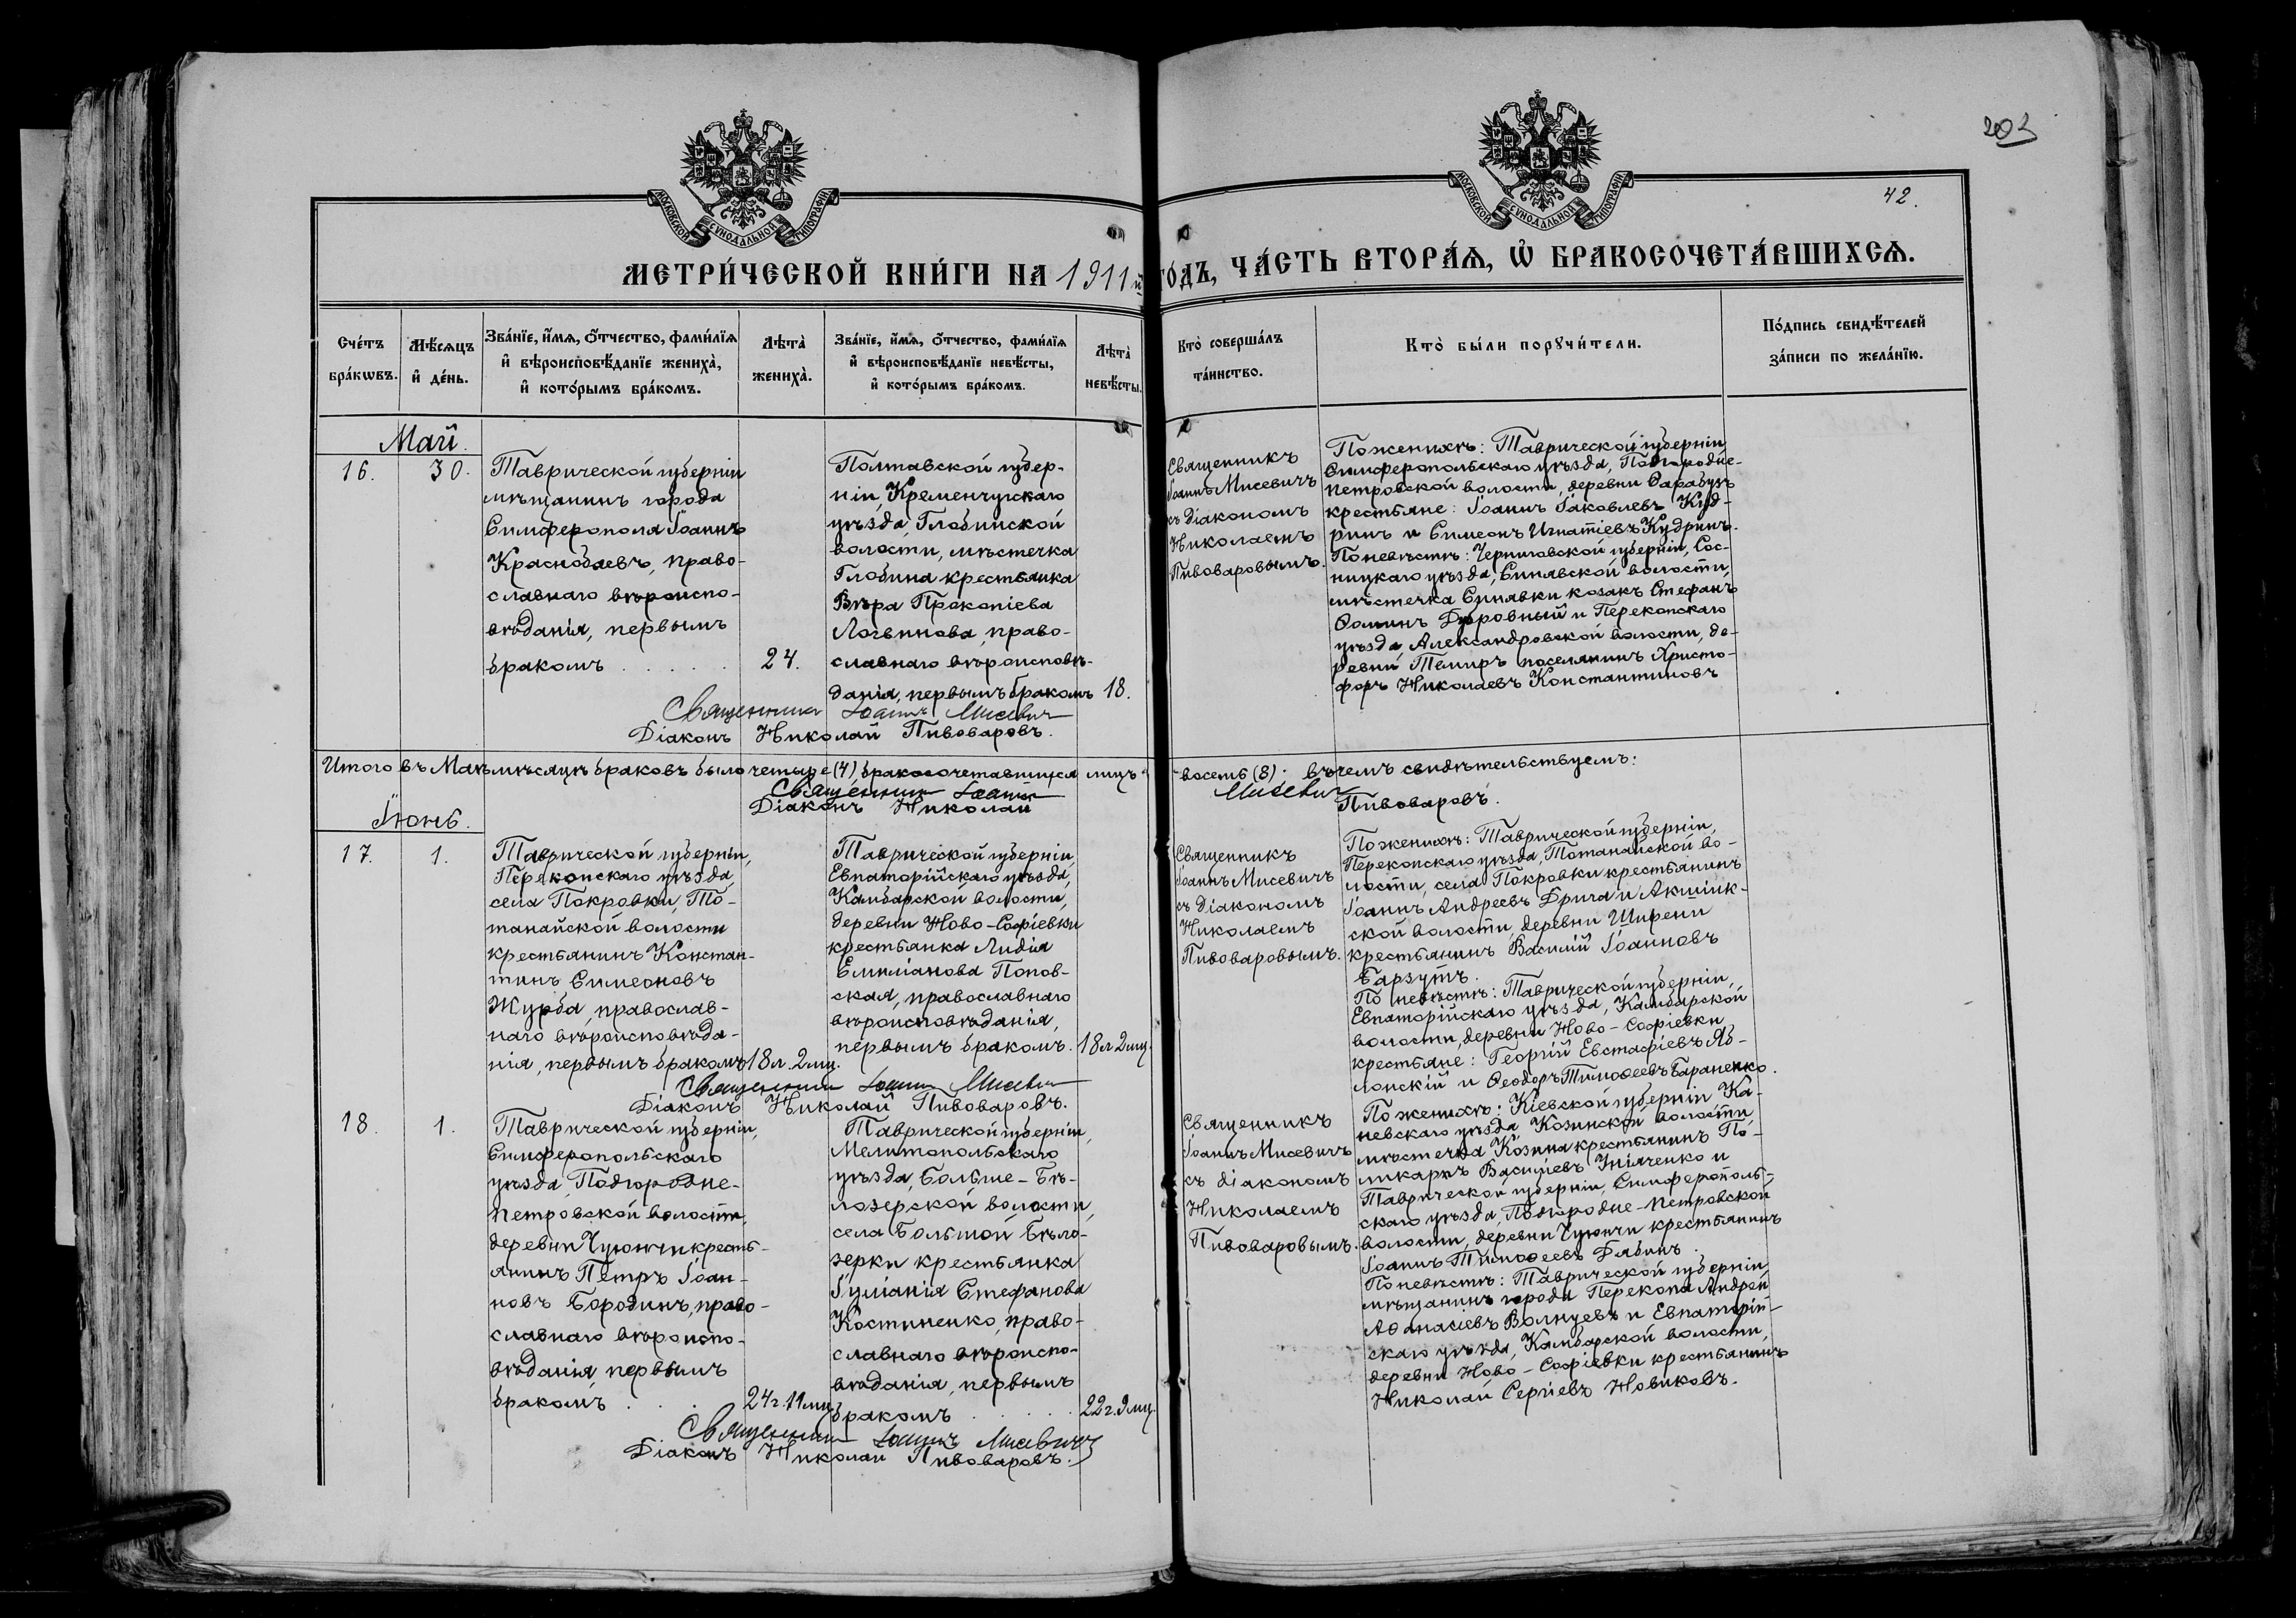 203
42.
МОСКОВСКОЙ СѴНОДАЛЬНОЙ ТИПОГРАФІИ
МОСКОВСКОЙ СѴНОДАЛЬНОЙ ТИПОГРАФІИ
МЕТРИ́ЧЕСКОЙ КНИ́ГИ НА 1911й ГО́ДЪ, ЧА́СТЬ ВТОРА́Ѧ, Ѡ҆ БРАКОСОЧЕТА́ВШИХСѦ.
Сче́тъ
бра́кѡвъ.
Мѣ́сѧцъ
и҆ де́нь.
Зва́нїе, и҆́мѧ, ѻ҆́тчество, фами́лїѧ
и҆ вѣроисповѣ́данїе жениха̀,
и҆ кото́рымъ бра́комъ.
Лѣта̀
жениха̀.
Зва́нїе, и҆́мѧ, ѻ҆́тчество, фами́лїѧ
и҆ вѣроисповѣ́данїе невѣ́сты,
и҆ кото́рымъ бра́комъ.
Лѣта̀
невѣ́сты.
Кто̀ соверша́лъ
та́инство.
Кто̀ бы́ли порꙋчи́тели.
По́дпись свидѣ́телей
за́писи по жела́нїю.
Май.
16.
30.
Таврической губерніи
мѣщанинъ города
Симферополя Іоаннъ
Краснобаевъ, право-
славнаго вѣроиспо-
вѣданія, первымъ
бракомъ . . . . . .
24.
Полтавской губер-
ніи Кременчугскаго
уѣзда, Глобинской
волости, мѣстечка
Глобина крестьянка
Вѣра Прокопіева
Логвинова, право-
славнаго вѣроисповѣ-
данія, первымъ бракомъ
18.
Священникъ
Іоаннъ Мисевичъ
съ діакономъ
Николаемъ
Пивоваровымъ.
По женихѣ: Таврической губерніи
Симферопольскаго уѣзда, Подгородне-
петровской волости, деревни Сарабузъ
крестьяне: Іоаннъ Іаковлевъ Куд-
ринъ и Симеонъ Игнатіевъ Кудринъ.
По невѣстѣ: Черниговской губерніи, Сос-
ницкаго уѣзда, Синявской волости,
мѣстечка Синявки козакъ Стефанъ
Ѳоминъ Дубровный и Перекопскаго
уѣзда, Александровской волости, де-
ревни Темиръ поселянинъ Христо-
форъ Николаевъ Константиновъ
Священникъ Іоаннъ Мисевичъ
Діаконъ Николай Пивоваровъ.
Итого въ Маѣ мѣсяцѣ браковъ было четыре (4), бракосочетавшихся лицъ восемь (8). Въ чемъ свидѣтельствуемъ:
Священникъ Іоаннъ Мисевичъ
Діаконъ Николай Пивоваровъ.
Іюнь.
17.
1.
Таврической губерніи,
Перекопскаго уѣзда,
села Покровки, То-
танайской волости
крестьянинъ Констан-
тинъ Симеоновъ
Журба, православ-
наго вѣроисповѣда-
нія, первымъ бракомъ
18 л. 2 мц.
Таврической губерніи,
Евпаторійскаго уѣзда,
Камбарской волости,
деревни Ново-Софіевки
крестьянка Лидія
Емиліанова Попов-
ская, православнаго
вѣроисповѣданія,
первымъ бракомъ.
18 л 2 мц.
Священникъ
Іоаннъ Мисевичъ
съ діакономъ
Николаемъ
Пивоваровымъ.
По женихѣ: Таврической губерніи,
Перекопскаго уѣзда, Тотанайской во-
лости, села Покровки крестьянинъ
Іоаннъ Андреевъ Дрига и Акшіик-
ской волости, деревни Ширени
крестьянинъ Василій Іоанновъ
Барзутъ.
По невѣстѣ: Таврической губерніи,
Евпаторійскаго уѣзда, Камбарской
волости, деревни Ново-Софіевки
крестьяне: Георгій Евстафіевъ Яб-
лонскій и Ѳеодоръ Тимоѳеевъ Бараненко.
Священникъ Іоаннъ Мисевичъ
Діаконъ Николай Пивоваровъ.
18.
1.
Таврической губерніи,
Симферопольскаго
уѣзда, Подгородне-
петровской волости,
деревни Чуюнчи кресть-
янинъ Петръ Іоан-
новъ Бородинъ, право-
славнаго вѣроиспо-
вѣданія, первымъ
бракомъ . . .
24 г. 11 мц.
Таврической губерніи,
Мелитопольскаго
уѣзда, Больше-Бѣ-
лозерской волости,
села Большой Бѣло-
зерки крестьянка
Іуліанія Стефанова
Костиненко, право-
славнаго вѣроиспо-
вѣданія, первымъ
бракомъ . . . . .
22 г. 9 мц.
Священникъ
Іоаннъ Мисевичъ
съ діакономъ
Николаемъ
Пивоваровымъ.
По женихѣ: Кіевской губерніи Ка-
невскаго уѣзда Козинской волости
мѣстечка Козина крестьянинъ По-
ликарпъ Василіевъ Гніяченко и
Таврической губерніи, Симферополь-
скаго уѣзда, Подгородне-петровской
волости, деревни Чуюнчи крестьянинъ
Іоаннъ Тимоѳеевъ Дябинъ.
По невѣстѣ: Таврической губерніи
мѣщанинъ города Перекопа Андрей
Аѳанасіевъ Волнуевъ и Евпаторій-
скаго уѣзда, Камбарской волости,
деревни Ново-Софіевки крестьянинъ
Николай Сергіевъ Новиковъ.
Священникъ Іоаннъ Мисевичъ
Діаконъ Николай Пивоваровъ.